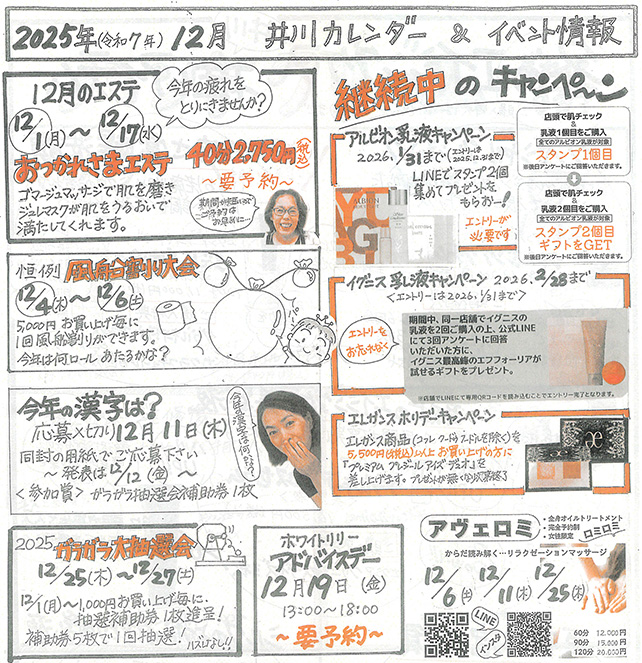 2025年(令和7年)12月 井川カレンダー & イベント情報
12月のエステ
今年の疲れを
とりにきませんか?
12/1(月)～12/17(水)
おつかれさまエステ 40分2,750円(税込)
～要予約～
ゴマージュマッサジで肌を磨き
ジュレマスクが肌をうるおいで
満たしてくれます。
期間中
ご予約は
お早めに
恒例 風船割り大会
12/4(木)～12/6(土)
5,000円お買い上げ毎に
1回風船割りができます。
今年は何ロールあたるかな?
今年の漢字は?
今年の漢字は何かな?
応募〆切り12月11日(木)
同封の用紙でご応募下さい
～発表は12/12(金)～
<参加賞> ガラガラ抽選会補助券1枚
2025 ガラガラ大抽選会
12/25(木)～12/27(土)
12/1(月)～1,000円お買い上げ毎に、
抽選補助券1枚進呈!
補助券5枚で1回抽選!
ハズレなし!!
ホワイトリリー
アドバイスデー
12月19日(金)
13:00～18:00
～要予約～
継続中のキャンペーン
アルビオン乳液キャンペーン
2026.1/31まで(エントリーは2025.12.31まで)
LINEでスタンプ2個
集めてプレゼントを
もらおー!
エントリーが
必要です
ALBION
店頭で肌チェック
&
乳液1個目をご購入
全てのアルビオン乳液が対象
スタンプ1個目
※後日アンケートにご回答いただきます。
店頭で肌チェック
&
乳液2個目をご購入
全てのアルビオン乳液が対象
スタンプ2個目
ギフトをGET
※後日アンケートにご回答いただきます。
イグニス乳液キャンペーン 2026.2/28まで
<エントリーは2026.1/31まで>
エントリーを
お忘れなく
期間中、同一店舗でイグニスの
乳液を2回ご購入の上、公式LINE
にて3回アンケートに回答
いただいた方に、
イグニス最高峰のエフフォーリアが
試せるギフトをプレゼント。
※店舗でLINEにて専用QRコードを読み込むことでエントリー完了となります。
エレガンスホリデーキャンペーン
エレガンス商品(コフレ クードゥプードルを除く)を
5,500円(税込)以上お買上げの方に
『プレミアム プレシール アイズ デュオ』を
差し上げます。プレゼントが無くなり次第終了
アヴェロミ
・全身オイルトリートメント
・完全予約制
・女性限定
ロミロミ
からだ読み解く…リラクゼーションマッサージ
12/6(土) 12/11(木) 12/25(木)
LINE
インスタ
60分 12,000円
90分 15,000円
120分 20,000円